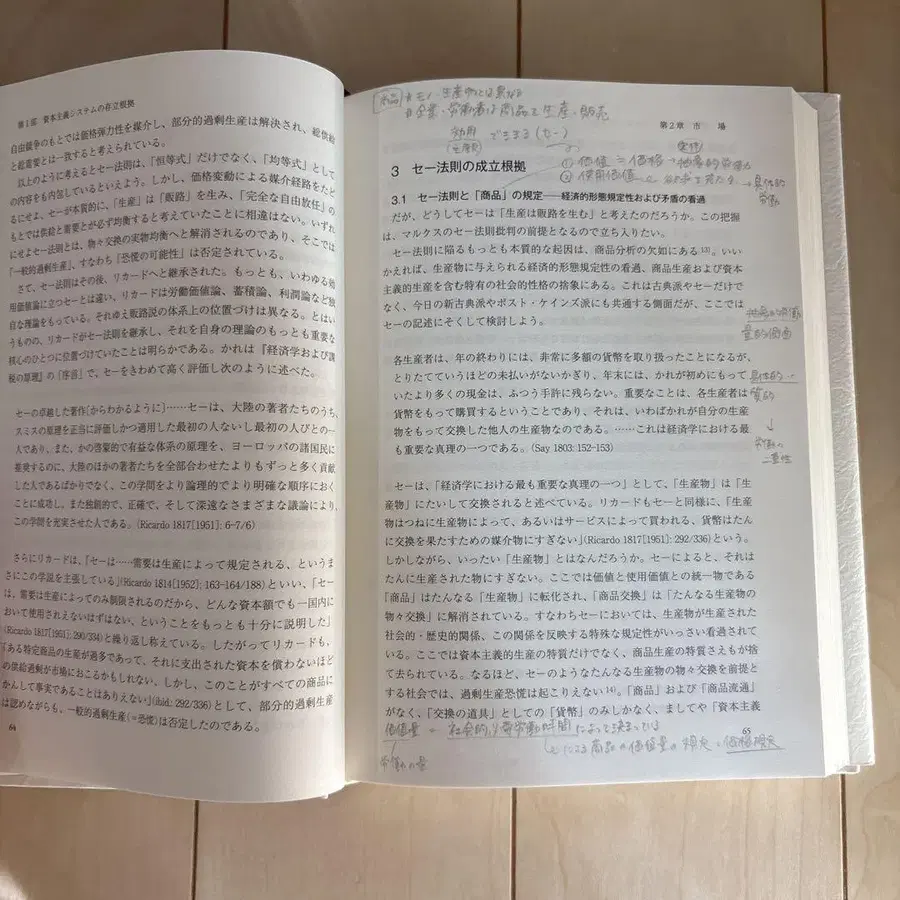 第1部 資本主義システムの存立根拠
自由競争のもとでは価格弾力性を媒介し、部分的過剰生産は解決され、総供給
と総需要とは一致すると考えられている。
以上のように考えるとセー法則は、「恒等式」だけでなく、「均等式」として
の内容をも内包しているといえよう。しかし、価格変動による媒介経路をたど
るにせよ、セーが本質的に、「生産」は「販路」を生み、「完全な自由放任」の
もとでは供給と需要とが必ず均衡すると考えていたことに相違はない。いずれ
にせよセー法則とは、物々交換の実物均衡へと解消されるのであり、そこでは
「一般的過剰生産」、すなわち「恐慌の可能性」は否定されている。
さて、セー法則はその後、リカードへと継承された。もっとも、いわゆる効
用価値論に立つセーとは違い、リカードは労働価値論、蓄積論、利潤論など独
自な理論をもっている。それゆえ販路説の体系上の位置づけは異なる。とはい
うものの、リカードがセー法則を継承し、それを自身の理論のもっとも重要な
核心のひとつに位置づけていたことは明らかである。かれは『経済学および課
税の原理』の「序言」で、セーをきわめて高く評価し次のように述べた。
セーの卓越した著作〔からわかるように〕……セーは、大陸の著者たちのうち、
スミスの原理を正当に評価しかつ適用した最初の人ないし最初の人びとの一
人であり、また、かの啓蒙的で有益な体系の原理を、ヨーロッパの諸国民に
推奨するのに、大陸のほかの著者たちを全部合わせたよりもずっと多く貢献
した人であるばかりでなく、この学問をより論理的でより明確な順序におく
ことに成功し、また独創的で、正確で、そして深遠なさまざまな議論により、
この学問を充実させた人である。(Ricardo 1817[1951]: 6-7/6)
さらにリカードは、「セーは……需要は生産によって規定される、というま
さにこの学説を主張している」(Ricardo 1814[1952]: 163-164/188)といい、「セー
は、需要は生産によってのみ制限されるのだから、どんな資本額でも一国内に
おいて使用されえないはずはない、ということをもっとも十分に説明した」
(Ricardo 1817[1951]: 290/334)と繰り返し称えている。したがってリカードも、
「ある特定商品の生産が過多であって、それに支出された資本を償わないほど
の供給過剰が市場におこるかもしれない。しかし、このことがすべての商品に
かんして事実であることはありえない」(ibid: 292/336)として、部分的過剰生産
は認めながらも、一般的過剰生産(=恐慌)は否定したのである。
64
商品 モノ・生産物とは異なる
企業・労働者は商品を生産・販売
効用 できまる(セー)
第2章 市 場
① 価値 = 価格 → 抽象的労働
② 使用価値
3 セー法則の成立根拠
3.1 セー法則と「商品」の規定――経済的形態規定性および矛盾の看過
だが、どうしてセーは「生産は販路を生む」と考えたのだろうか。この把握
は、マルクスのセー法則批判の前提となるので立ち入りたい。
セー法則に陥るもっとも本質的な起因は、商品分析の欠如にある13)。いい
かえれば、生産物に与えられる経済的形態規定性の看過、商品生産および資本
主義的生産を含む特有の社会的性格の捨象にある。これは古典派やセーだけで
なく、今日の新古典派やポスト・ケインズ派にも共通する側面だが、ここでは
セーの記述にそくして検討しよう。
各生産者は、年の終わりには、非常に多額の貨幣を取り扱ったことになるが、
とりたてていうほどの未払いがないかぎり、年末には、かれが初めにもって
いたより多くの現金は、ふつう手許に残らない。重要なことは、各生産者は
貨幣をもって購買するということであり、それは、いわばかれが自分の生産
物をもって交換した他人の生産物なのである。……これは経済学における最
も重要な真理の一つである。(Say 1803: 152-153)
質的
↓
労働の
二重性
セーは、「経済学における最も重要な真理の一つ」として、「生産物」は「生
産物」にたいして交換されると述べている。リカードもセーと同様に、「生産
物はつねに生産物によって、あるいはサービスによって買われる、貨幣はたん
に交換を果たすための媒介物にすぎない」(Ricardo 1817[1951]: 292/336)という。
しかしながら、いったい「生産物」とはなんだろうか。セーによると、それは
たんに生産された物にすぎない。ここでは価値と使用価値との統一物である
「商品」はたんなる「生産物」に転化され、「商品交換」は「たんなる生産物の
物々交換」に解消されている。すなわちセーにおいては、生産物が生産された
社会的・歴史的関係、この関係を反映する特殊な規定性がいっさい看過されて
いる。ここでは資本主義的生産の特質だけでなく、商品生産の特質さえもが捨
て去られている。なるほど、セーのようなたんなる生産物の物々交換を前提と
する社会では、過剰生産恐慌は起こりえない14)。「商品」および「商品流通」
がなく、「交換の道具」としての「貨幣」のみしかなく、ましてや「資本主義
65
価値量 = 社会的必要労働時間 によって決まっている
労働の量